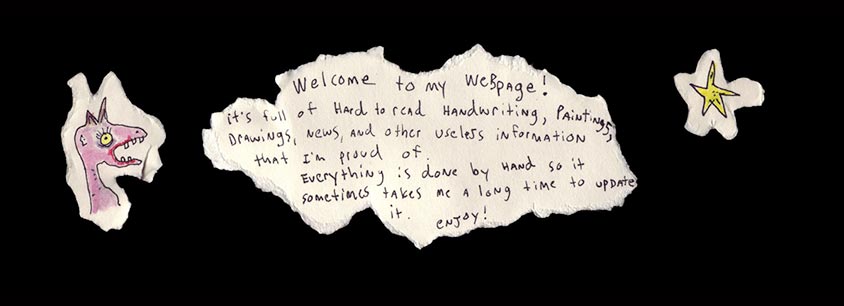 Welcome to my Webpage!
it's full of Hard to read Handwriting, Paintings,
Drawings, news, and other useless information
that I'm proud of.
Everything is done by Hand so it
sometimes takes me a long time to update
it. enjoy!